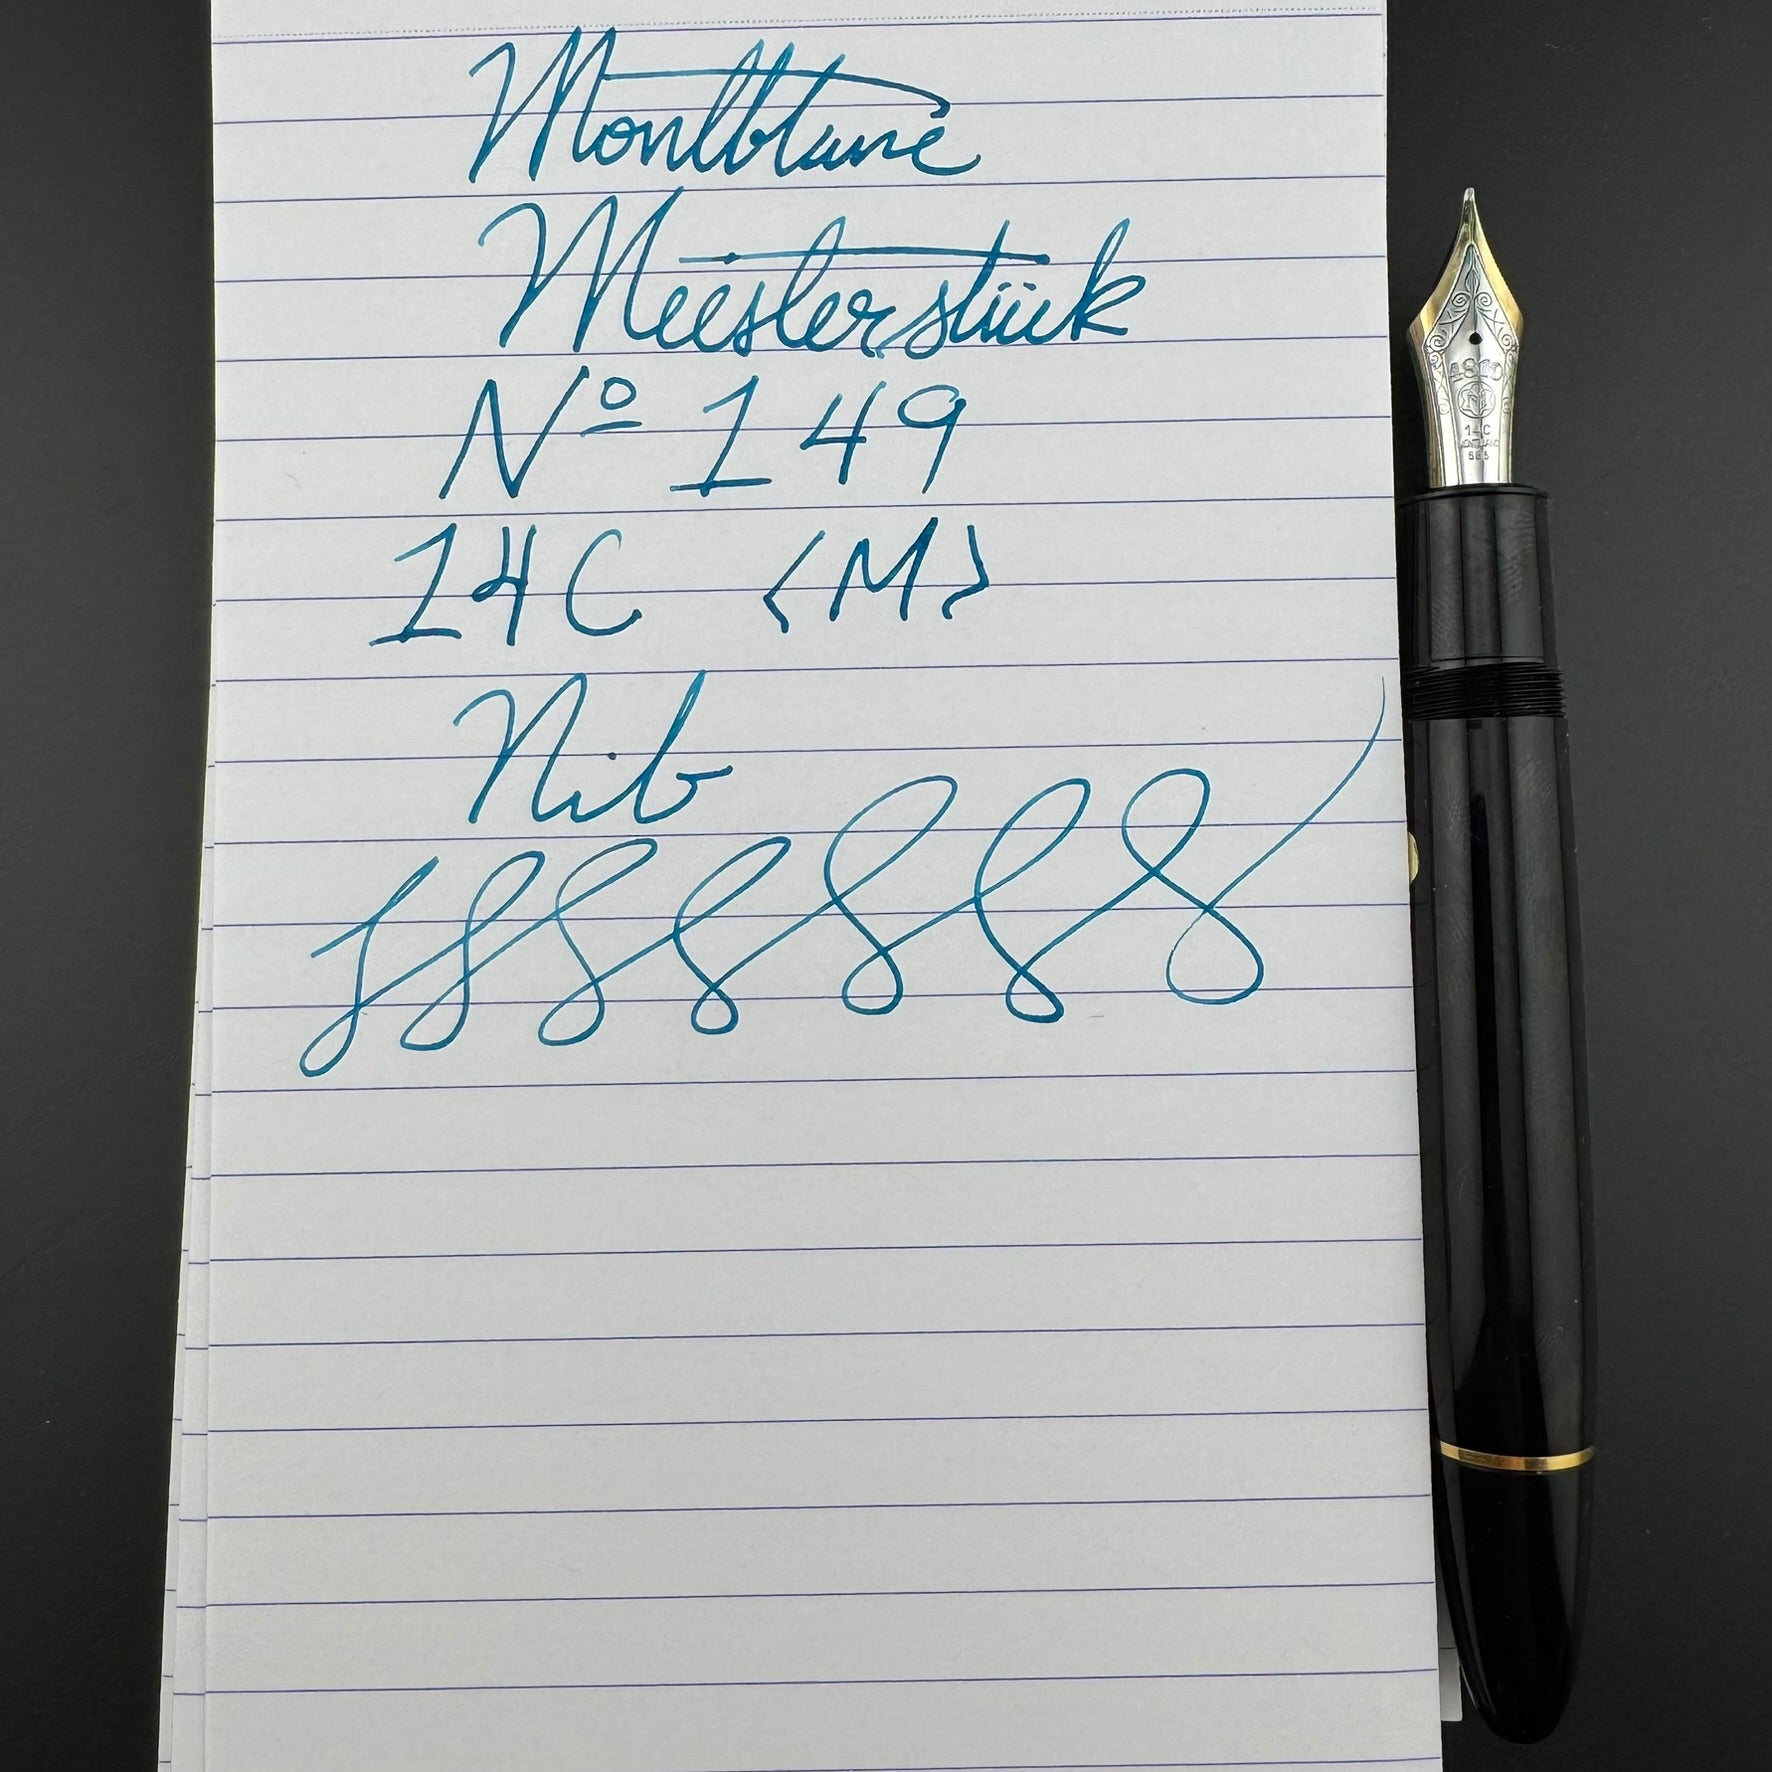 Montblanc
Meisterstück
Nº 149
14C <M>
Nib
4810
M
14C
MONTBLANC
585